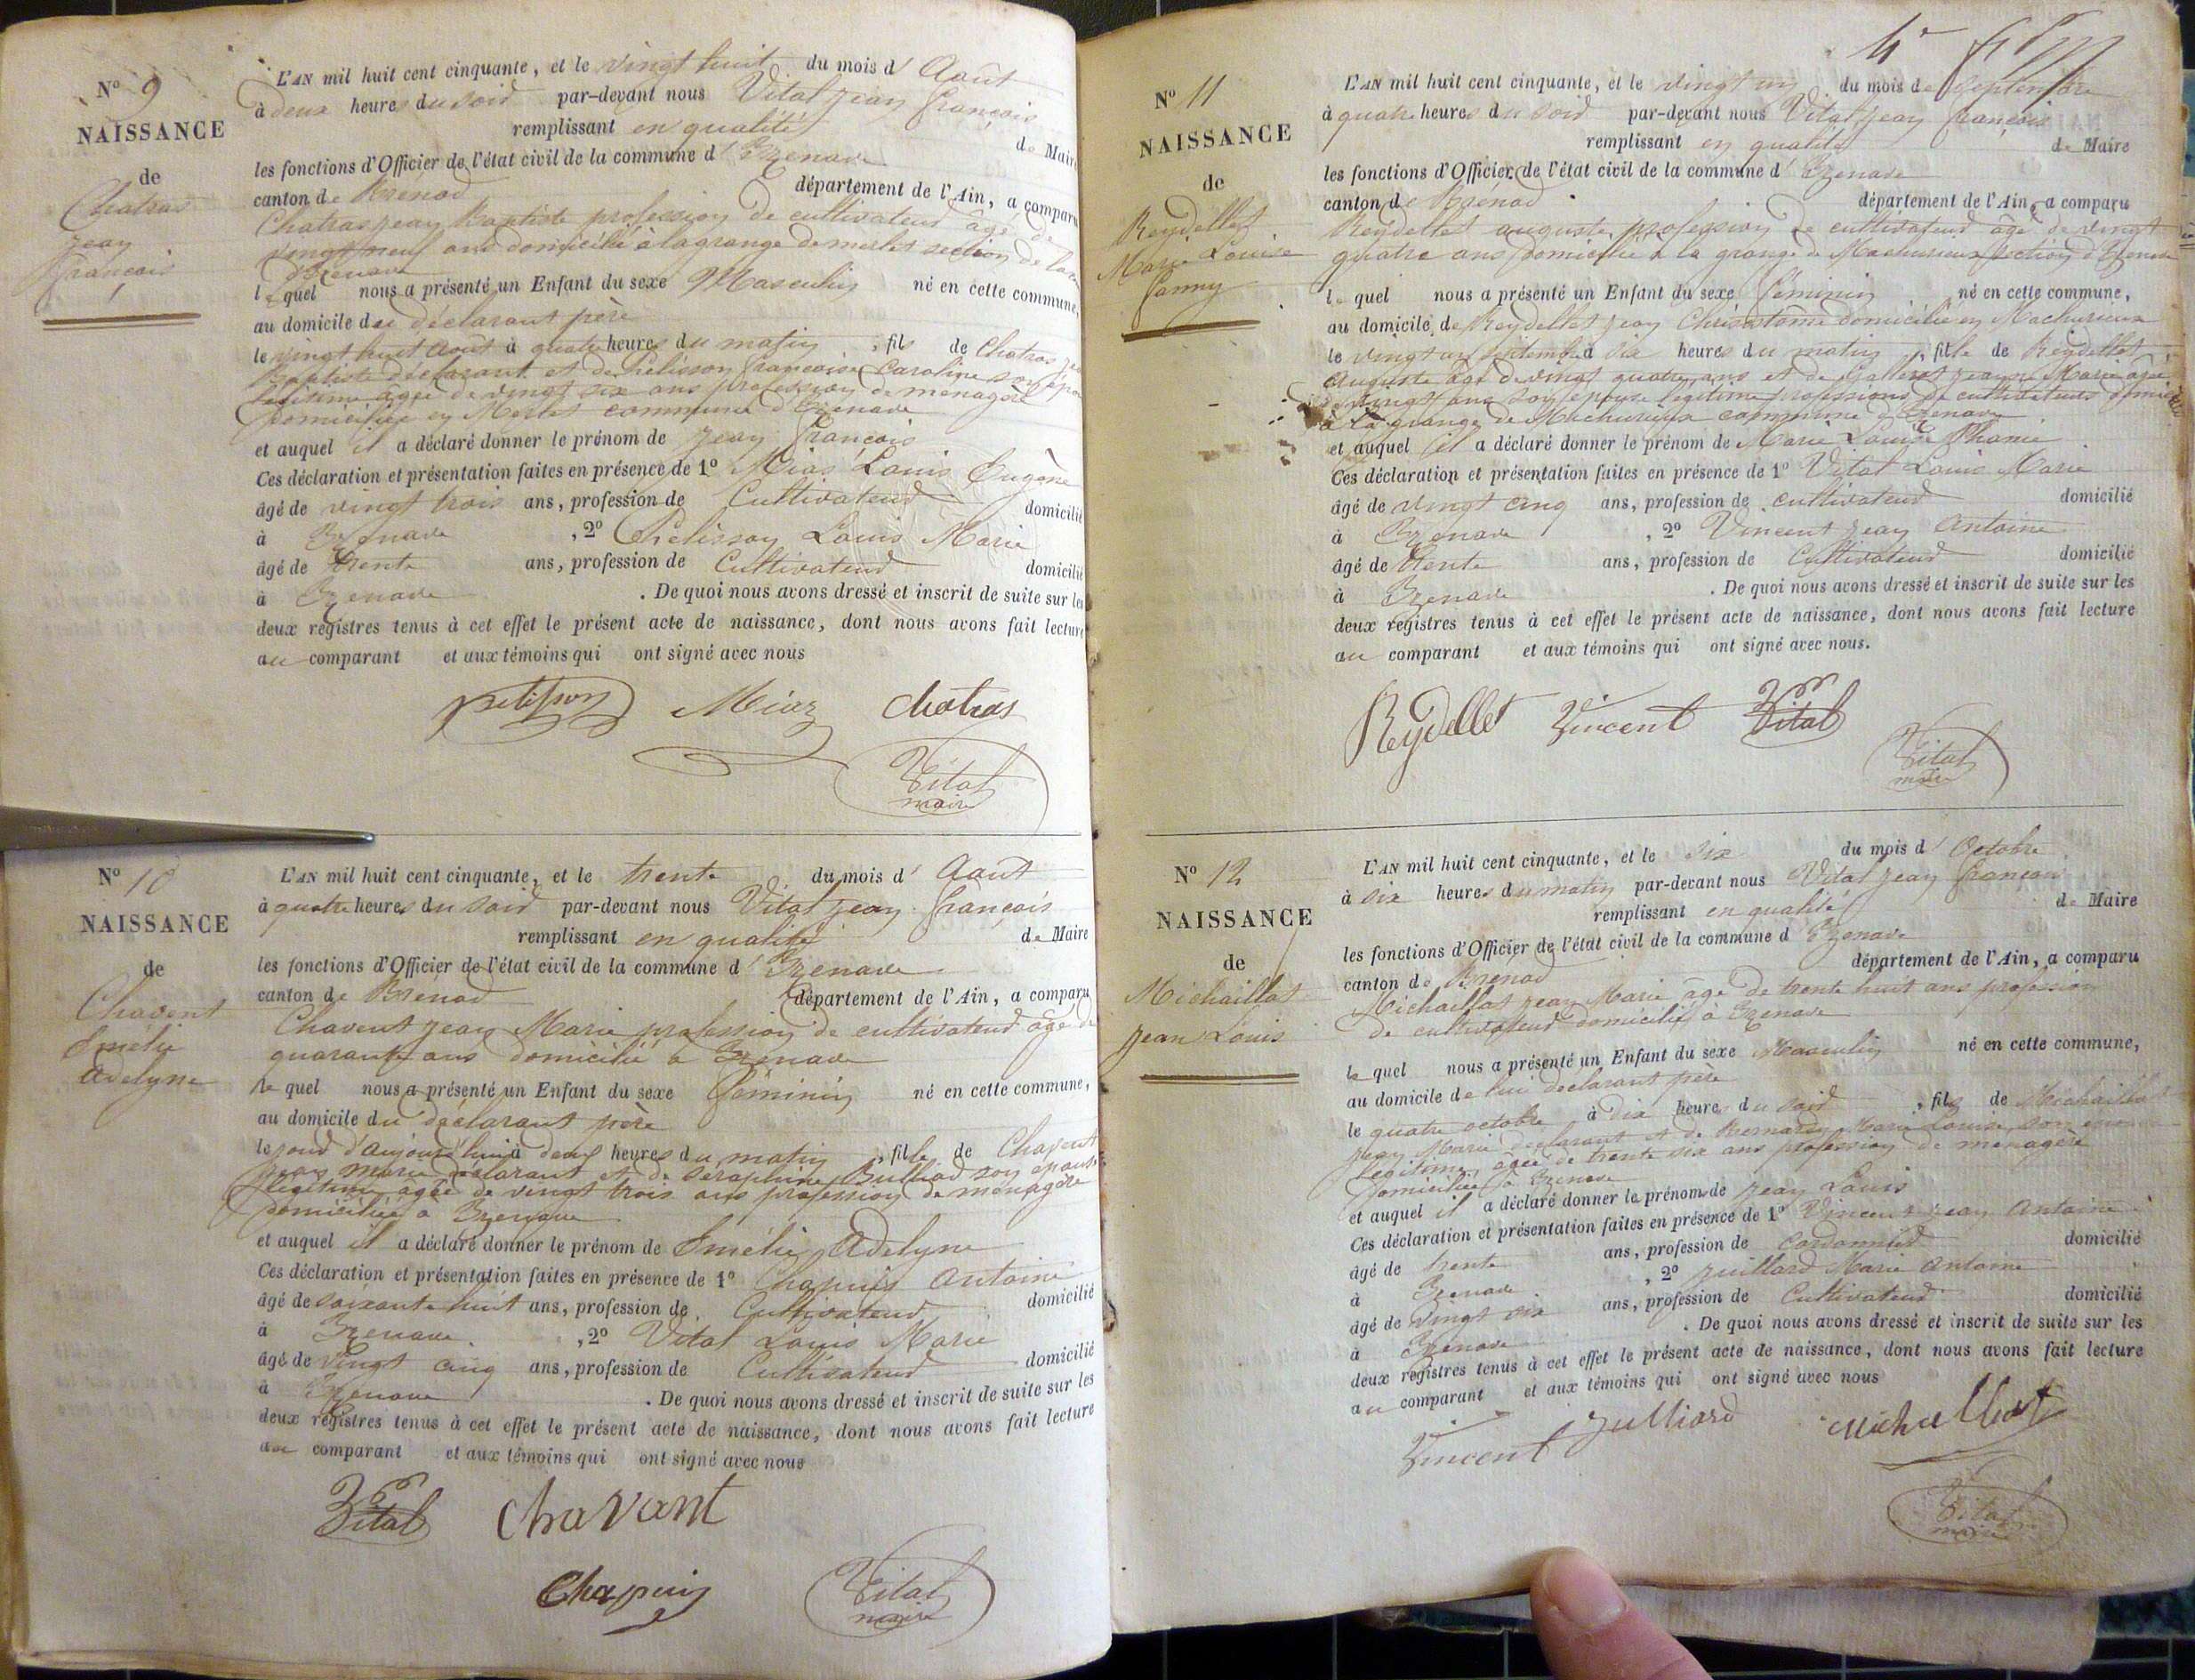 N° 9
NAISSANCE
de
Chatras
Jean
François
L'AN mil huit cent cinquante, et le vingt huit du mois d' Août
à deux heures du soir par-devant nous Vital Jean François
remplissant en qualité de Maire
les fonctions d'Officier de l'état civil de la commune d' Izenave
canton de Brenod département de l'Ain, a comparu
Chatras Jean Baptiste profession de cultivateur âgé de
vingt neuf ans domicilié à la grange de merlet section de
d'Izenave
le quel nous a présenté un Enfant du sexe Masculin né en cette commune,
au domicile du déclarant père
le vingt huit août à quatre heures du matin, fils de Chatras
Baptiste déclarant et de Pelisson françoise Caroline son
légitime âgée de vingt six ans profession de menagère
domiciliée en Merlet commune d'Izenave
et auquel il a déclaré donner le prénom de Jean François
Ces déclaration et présentation faites en présence de 1° Mias Louis Eugène
âgé de vingt trois ans, profession de Cultivateur domicilié
à Izenave, 2° Pelisson Louis Marie
âgé de trente ans, profession de Cultivateur domicilié
à Izenave. De quoi nous avons dressé et inscrit de suite sur les
deux registres tenus à cet effet le présent acte de naissance, dont nous avons fait lecture
au comparant et aux témoins qui ont signé avec nous
pelisson Miaz chatras
Vital
maire
N° 10
NAISSANCE
de
Chavent
Emélie
Adelyne
L'AN mil huit cent cinquante, et le trente du mois d' Août
à quatre heures du soir par-devant nous Vital Jean françois
remplissant en qualité de Maire
les fonctions d'Officier de l'état civil de la commune d' Izenave
canton de Brenod département de l'Ain, a comparu
Chavent Jean Marie profession de cultivateur âgé de
quarante ans domicilié à Izenave
le quel nous a présenté un Enfant du sexe féminin né en cette commune,
au domicile du déclarant père
le jour d'aujourd'hui à deux heures du matin, fille de Chavent
Jean Marie déclarant et de Séraphine Bulliod son épouse
légitime âgée de vingt trois ans profession de ménagère
domiciliée à Izenave
et auquel il a déclaré donner le prénom de Emélie Adelyne
Ces déclaration et présentation faites en présence de 1° Chapuis Antoine
âgé de soixante huit ans, profession de Cultivateur domicilié
à Izenave, 2° Vital Louis Marie
âgé de Vingt cinq ans, profession de Cultivateur domicilié
à Izenave. De quoi nous avons dressé et inscrit de suite sur les
deux registres tenus à cet effet le présent acte de naissance, dont nous avons fait lecture
au comparant et aux témoins qui ont signé avec nous
Vital Chavant
Chapuis Vital
maire
N° 11
NAISSANCE
de
Reydellet
Marie Louise
fanny
L'AN mil huit cent cinquante, et le vingt un du mois de septembre
à quatre heures du soir par-devant nous Vital Jean François
remplissant en qualité de Maire
les fonctions d'Officier de l'état civil de la commune d' Izenave
canton de Brénod département de l'Ain, a comparu
Reydellet auguste profession de cultivateur âgé de vingt
quatre ans domicilié à la grange de Machurieux section d'Izenave
le quel nous a présenté un Enfant du sexe féminin né en cette commune,
au domicile de Reydellet Jean Chrisostôme domicilié en Machurieux
le vingt un septembre à six heures du matin, fille de Reydellet
Auguste âgé de vingt quatre ans et de Jeanne Marie âgée
de vingt ans son épouse légitime professions de cultivateurs
à la grange de Machurieux commune d'Izenave
et auquel il a déclaré donner le prénom de Marie Louise Phanie
Ces déclaration et présentation faites en présence de 1° Vital Louis Marie
âgé de vingt cinq ans, profession de cultivateur domicilié
à Izenave, 2° Vincent Jean Antoine
âgé de trente ans, profession de Cultivateur domicilié
à Izenave. De quoi nous avons dressé et inscrit de suite sur les
deux registres tenus à cet effet le présent acte de naissance, dont nous avons fait lecture
au comparant et aux témoins qui ont signé avec nous.
Reydellet Vincent Vital
Vital
maire
N° 12
NAISSANCE
de
Michaillat
Jean Louis
L'AN mil huit cent cinquante, et le six du mois d' Octobre
à six heures du matin par-devant nous Vital Jean françois
remplissant en qualité de Maire
les fonctions d'Officier de l'état civil de la commune d' Izenave
canton de Brenod département de l'Ain, a comparu
Michaillat Jean Marie âgé de trente huit ans profession
de cultivateur domicilié à Izenave
le quel nous a présenté un Enfant du sexe Masculin né en cette commune,
au domicile de lui déclarant père
le quatre octobre à dix heures du soir, fils de Michaillat
Jean Marie déclarant et de Marie Louise son épouse
légitime, âgée de trente six ans profession de ménagère
domiciliée à Izenave
et auquel il a déclaré donner le prénom de Jean Louis
Ces déclaration et présentation faites en présence de 1° Vincent Jean Antoine
âgé de trente ans, profession de Cordonnier domicilié
à Izenave, 2° Juillard Marie Antoine
âgé de vingt six ans, profession de Cultivateur domicilié
à Izenave. De quoi nous avons dressé et inscrit de suite sur les
deux registres tenus à cet effet le présent acte de naissance, dont nous avons fait lecture
au comparant et aux témoins qui ont signé avec nous
Vincent Julliard Michallat
Vital
maire